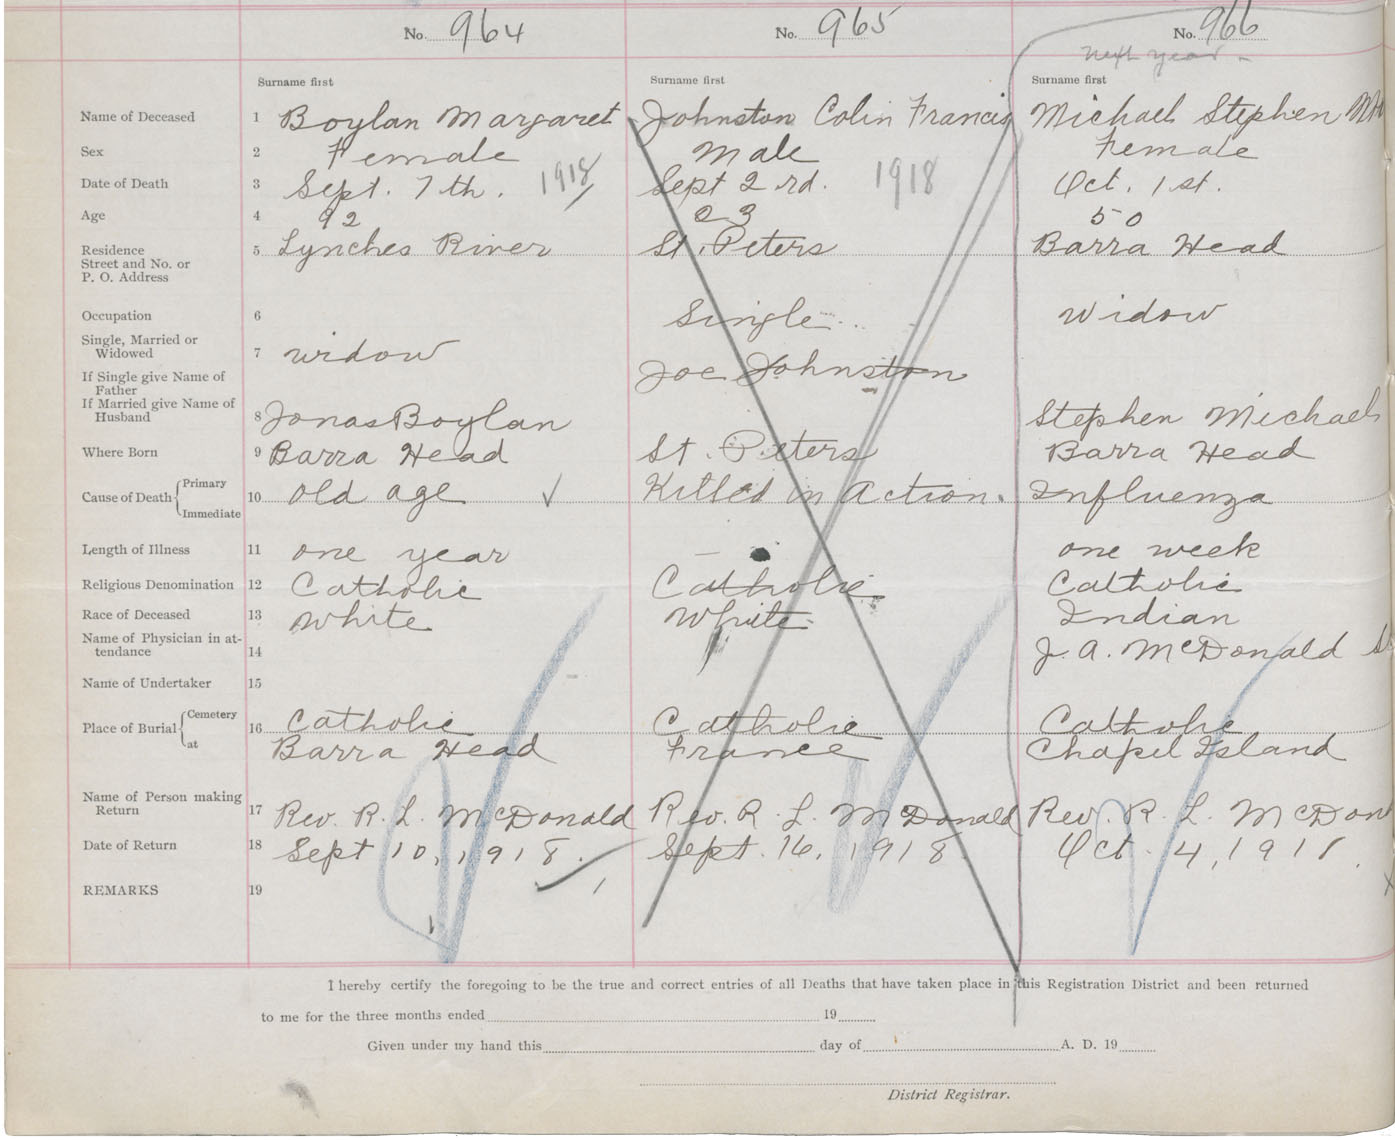 No. 964 No. 965 No. 966
next year -
Surname first Surname first Surname first
Name of Deceased 1 Boylan Margaret Johnston Colin Francis Michael Stephen
Sex 2 Female Male Female
Date of Death 3 Sept. 7th. 1918 Sept 2rd. 1918 Oct. 1st.
Age 4 92 23 50
Residence 5 Lynches River St. Peters Barra Head
Street and No. or
P. O. Address
Occupation 6 Single Widow
Single, Married or
Widowed 7 widow
If Single give Name of Joe Johnston
Father
If Married give Name of
Husband 8 Jonas Boylan Stephen Michael
Where Born 9 Barra Head St. Peters Barra Head
Cause of Death { Primary
10 old age ✓ Killed in Action. Influenza
Immediate
Length of Illness 11 one year — one week
Religious Denomination 12 Catholic Catholic Catholic
Race of Deceased 13 White White Indian
Name of Physician in at-
tendance 14 J. A. McDonald
Name of Undertaker 15
Place of Burial { Cemetery 16 Catholic Catholic Catholic
at Barra Head France Chapel Island
Name of Person making
Return 17 Rev. R. L. McDonald Rev. R. L. McDonald Rev. R. L. McDon
Date of Return 18 Sept 10, 1918. Sept. 16, 1918 Oct. 4, 191
REMARKS 19
I hereby certify the foregoing to be the true and correct entries of all Deaths that have taken place in this Registration District and been returned
to me for the three months ended 19
Given under my hand this day of A. D. 19
District Registrar.